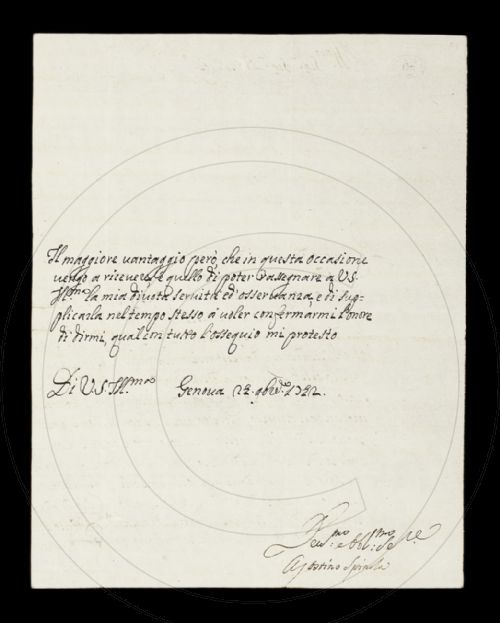 Il maggiore vantaggio però, che in questa occasione
vengo a ricevere, è quello di poter rassegnare a V.S.
Ill.ma la mia divota servitù ed osservanza, e di sup-
plicarla nel tempo stesso a voler confermarmi l'onore
di dirmi, qual con tutto l'ossequio mi protesto
Di V.S. Ill.ma Genova 22. 9bre.
Dev.mo et Obl.mo Se.re
Agostino Spinola